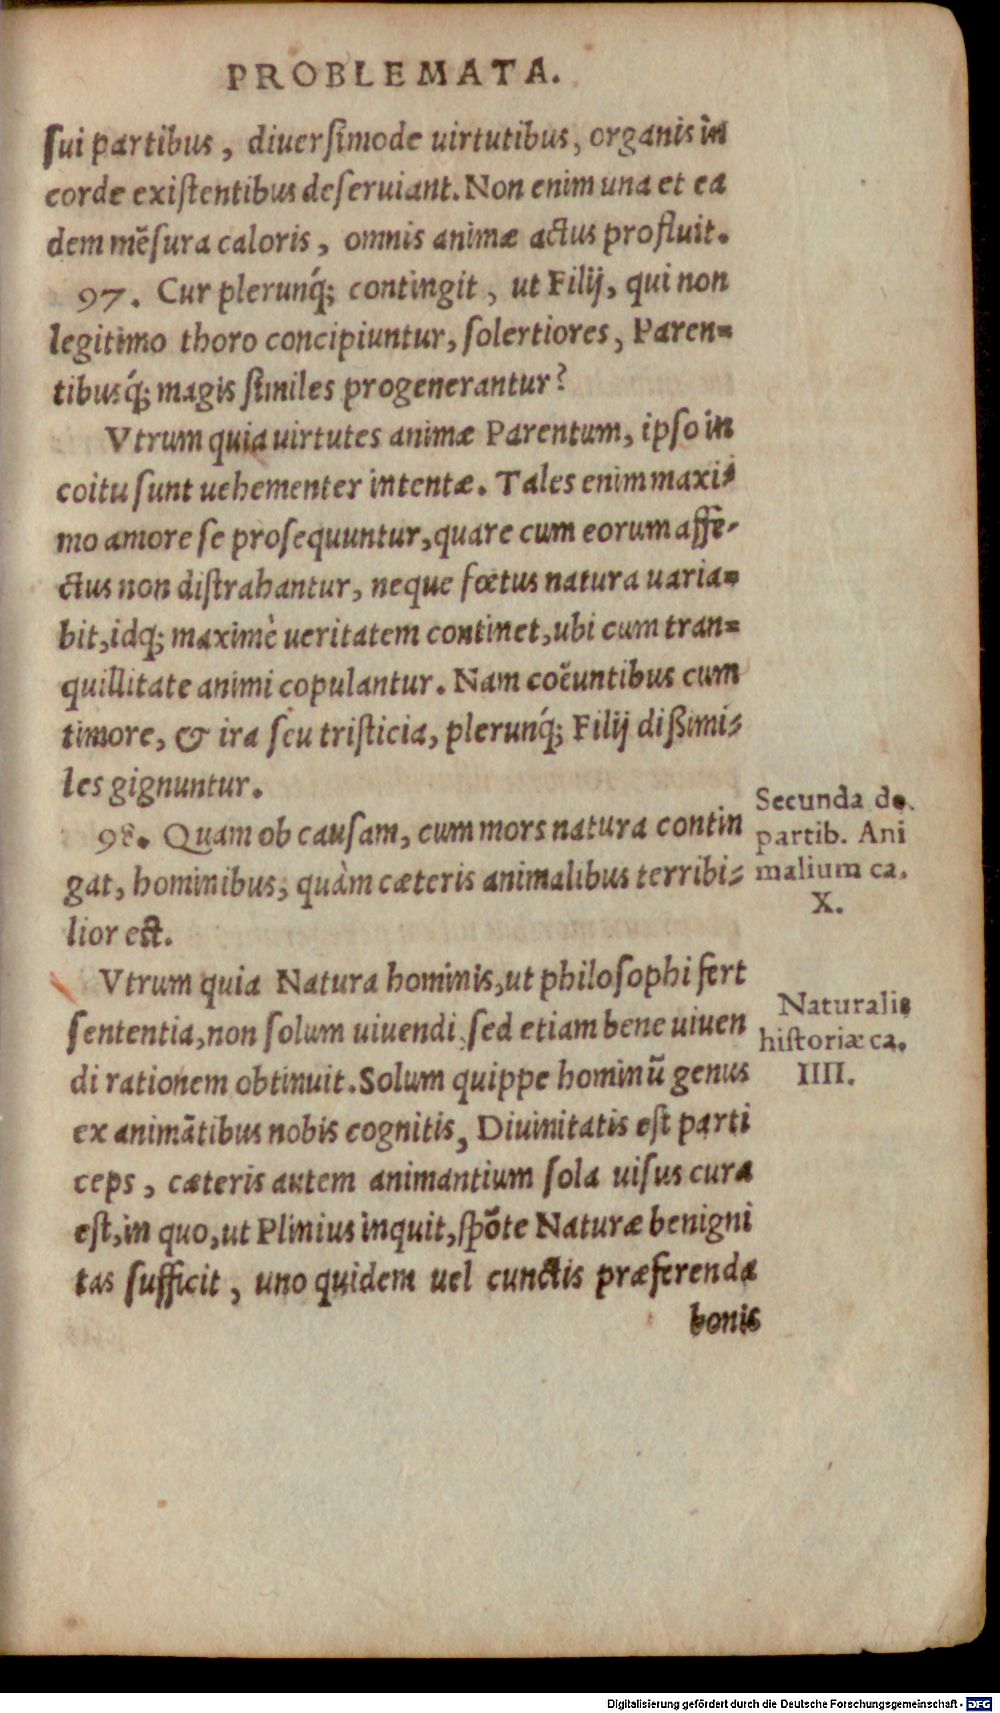 PROBLEMATA.
ſui partibus, diuerſimode uirtutibus, organis in
corde exiſtentibus deſeruiant. Non enim una et ea
dem mẽſura caloris, omnis animæ actus profluit.
97. Cur plerunq́; contingit, ut Filij, qui non
legitimo thoro concipiuntur, ſolertiores, Paren=
tibusq́; magis ſimiles progenerantur?
Vtrum quia uirtutes animæ Parentum, ipſo in
coitu ſunt uehementer intentæ. Tales enim maxi=
mo amore ſe proſequuntur, quare cum eorum affe=
ctus non diſtrahantur, neque fœtus natura uaria=
bit, idq; maximè ueritatem continet, ubi cum tran=
quillitate animi copulantur. Nam coẽuntibus cum
timore, & ira ſeu triſticia, plerunq́; Filij dißimi=
les gignuntur.
98. Quam ob cauſam, cum mors natura contin
gat, hominibus, quàm cæteris animalibus terribi=
lior eſt.
Vtrum quia Natura hominis, ut philoſophi fert
ſententia, non ſolum uiuendi ſed etiam bene uiuen
di rationem obtinuit. Solum quippe hominũ genus
ex animãtibus nobis cognitis, Diuinitatis eſt parti
ceps, cæteris autem animantium ſola uiſus cura
eſt, in quo, ut Plinius inquit, ſpõte Naturæ benigni
tas ſufficit, uno quidem uel cunctis præferenda
bonis
Secunda de
partib. Ani
malium ca.
X.
Naturalis
hiſtoriæ ca.
IIII.
Digitalisierung gefördert durch die Deutsche Forschungsgemeinschaft - DFG